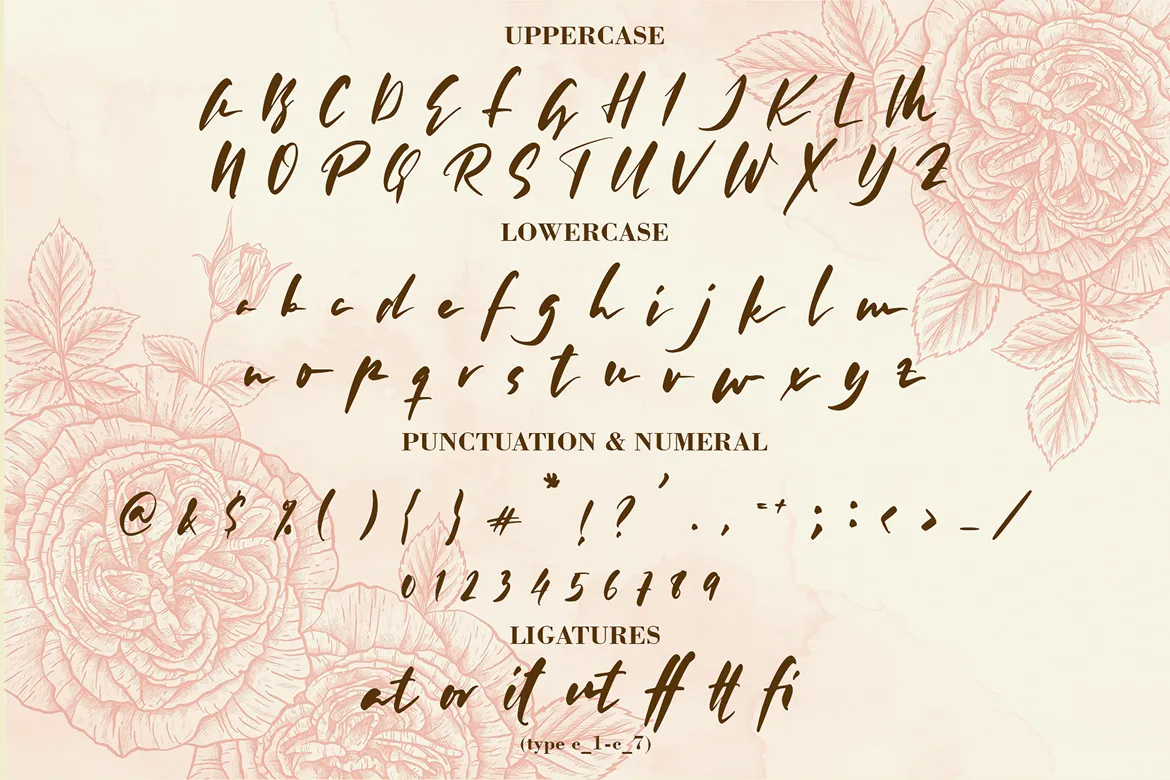 UPPERCASE
A B C D E F G H I J K L M
N O P Q R S T U V W X Y Z
LOWERCASE
a b c d e f g h i j k l m
n o p q r s t u v w x y z
PUNCTUATION & NUMERAL
@ & $ % ( ) { } # * ! ? ' . , = + ; : < > _ /
0 1 2 3 4 5 6 7 8 9
LIGATURES
at or it ut ff tt fi
(type c_1-c_7)